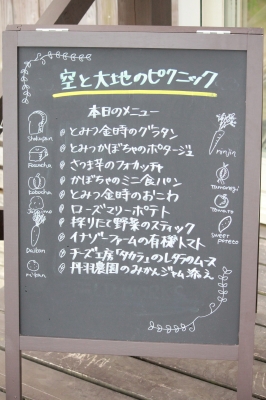 空と大地のピクニック
本日のメニュー
とみつ金時のグラタン
とみつかぼちゃのポタージュ
さつま芋のフォカッチャ
かぼちゃのミニ食パン
とみつ金時のおこわ
ローズマリーポテト
採りたて野菜のスティック
イナゾーファームの有機トマト
チーズ工房「タカラ」のレタラのムース
丹羽農園のみかんジャム添え
Shokupan
Foccacha
kabocha
Daikon
mikan
ninjin
Tamanegi
Tomato
sweet poteto